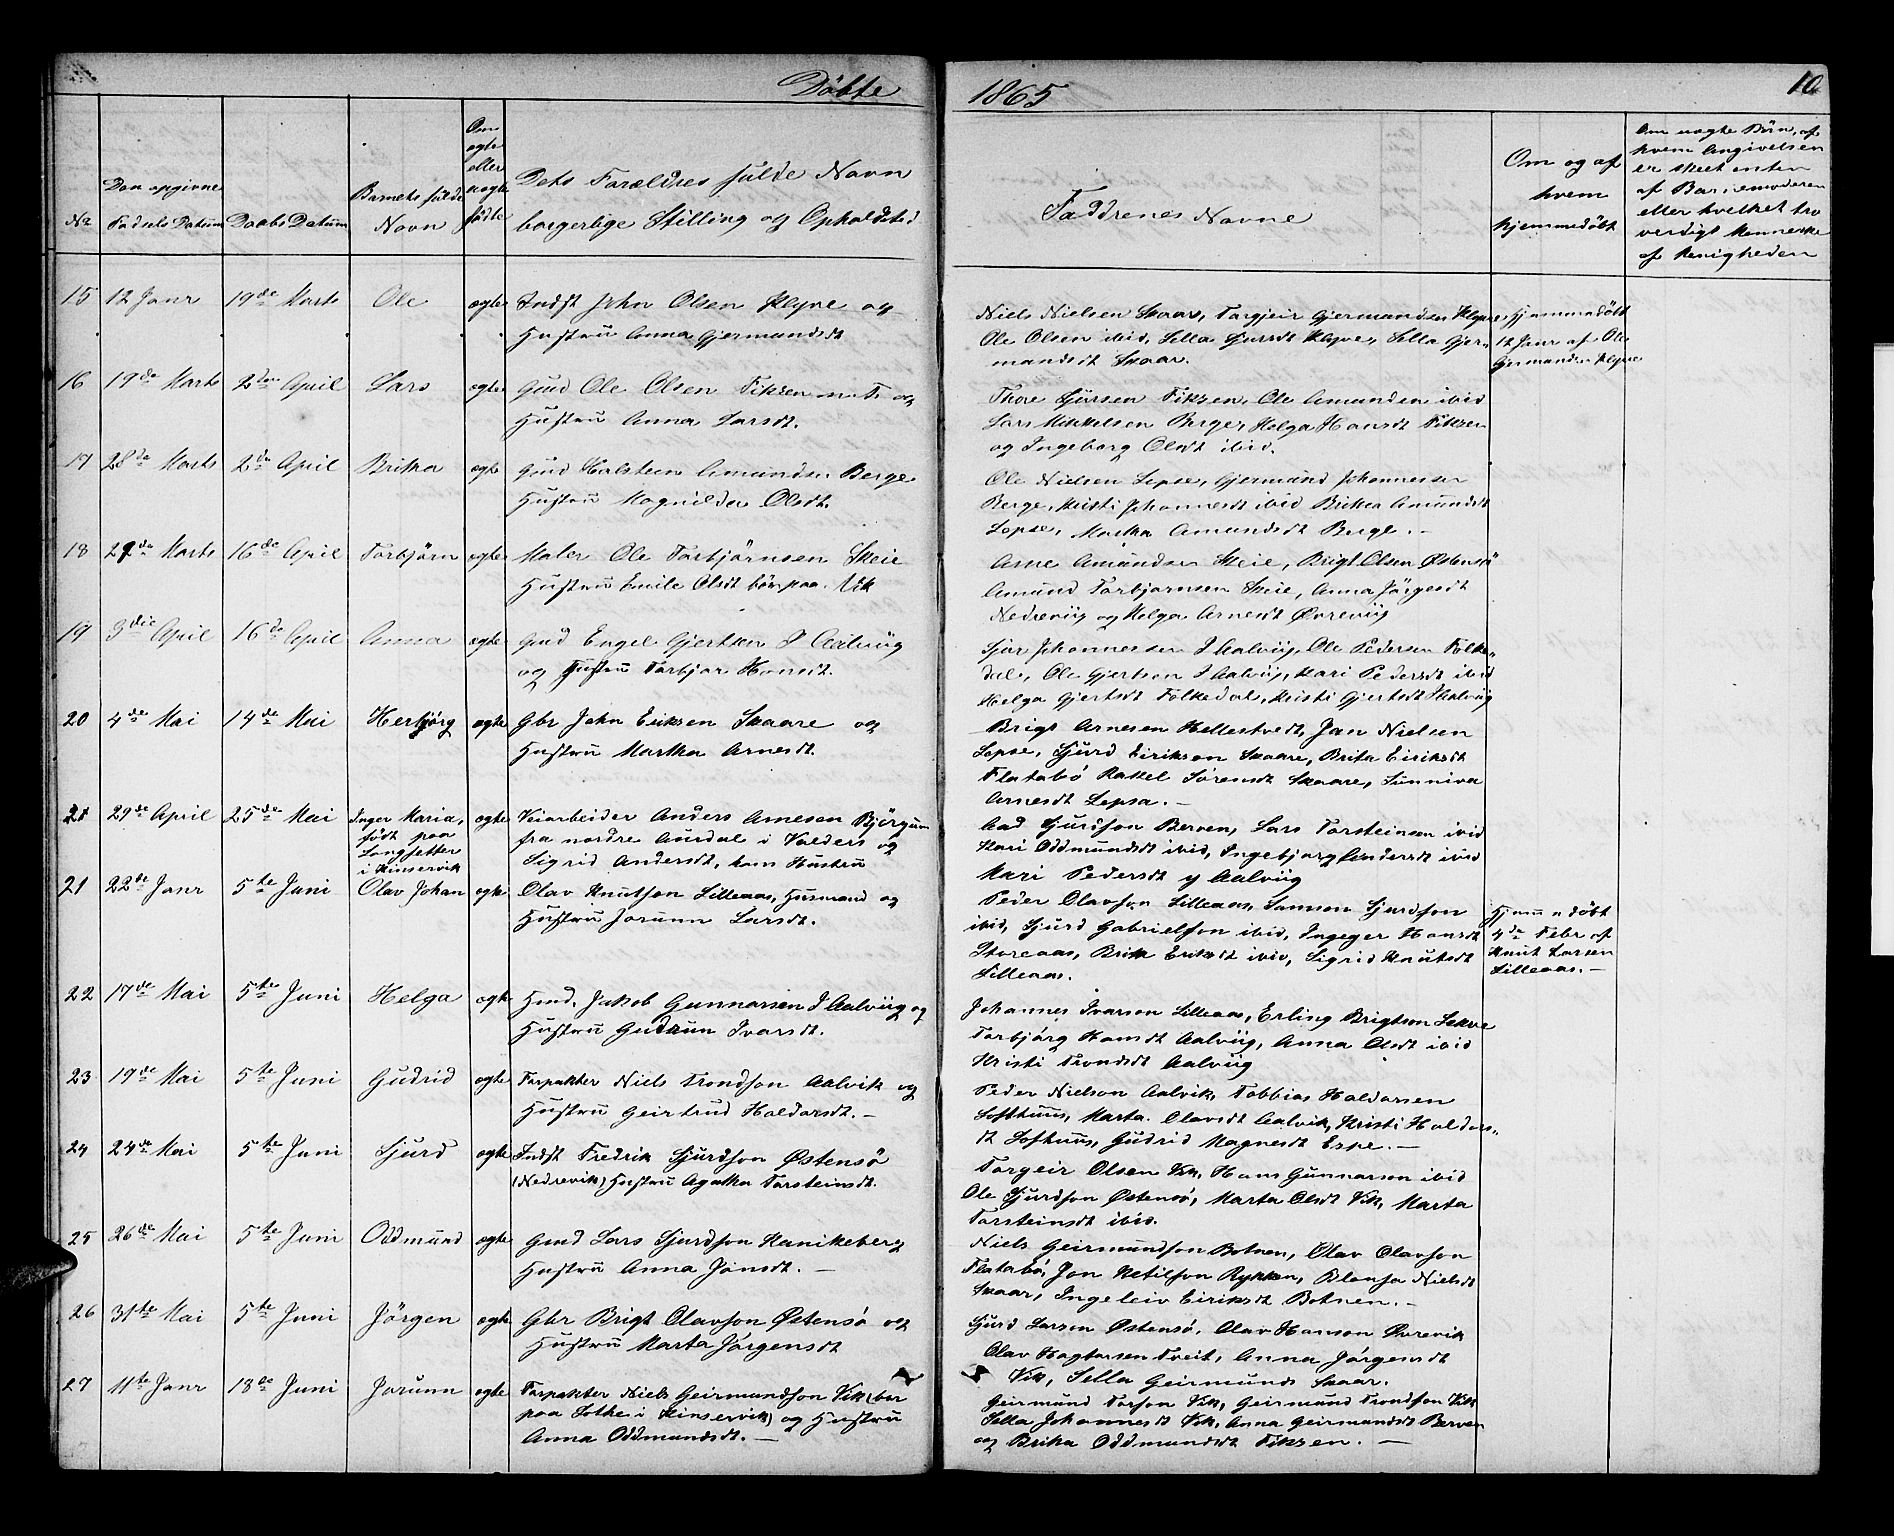 Döbte
1865
10
No
Den opgivne
Födsels Datum
Daabs Datum
Barnets fulde
Navn
Om
ægte
eller
uægte
födte
Dets Forældres fulde Navn
borgerlige Stilling og Opholdsted
Faddrenes Navne
Om og af
hvem
hjemmedöbt
Om uægte Börn, af
hvem Angivelsen
er skeet enten
af Barnemoderen
eller hvilket tro
værdigt Menneske
af Menigheden
15 12 Janr 19de Marts Ole ægte Indst John Olsen Klyve og
Hustru Anna Gjermundsdt
Niels Nielsen Skaar, Torgjeir Gjermundsen Klyve,
Ole Olsen ibid, Sella Sjursdt Klyve, Sella Gjer-
mundsdt Skaar.
Hjemmedöbt
12 Janr af Ole
Gjermundsen Klyve
16 19de Marts 2den April Lars ægte Gmd Ole Olsen Fiksen og
Hustru Anna Larsdt.
Thore Sjursen Fiksen, Ole Amunden ibid
Lars Mikkelsen Berger Helga Hansdt Fiksen
og Ingeborg Olsdt ibid.
17 28de Marts 2de April Britha ægte Gmd Halstein Amundsen Berge
Hustru Magnilda Olsdt.
Ole Nielsen Lepse, Gjermund Johannessen
Berge, Kristi Johannesdt ibid Britha Amundsdt
Lepse, Martha Amundsdt Berge. -
18 29de Marts 16de April Torbjörn ægte Maler Ole Torbjörnsen Skeie
Hustru Emile Olsdt bör paa Vik
Arne Amundsen Skeie, Brigt Olsen Østensö
Amund Torbjornsen Skeie, Anna Jörgensdt
Nedreviig og Helga Arnesdt Øvreviig
19 3die April 16de April Anna ægte Gmd Engel Gjertsen I Aalviig
og Hustru Torbjor Hansdt.
Sjur Johannessen I Aalviig, Ole Pedersen Folke-
dal, Ole Gjertsen I Aalviig, Kari Pedersdt ibid
Helga Gjertsdt Folkedal, Kristi Gjertsdt I Aalviig
20 4de Mai 14de Mai Herbjörg ægte Gbr John Eriksen Skaare og
Hustru Martha Arnesdt.
Brigt Arnesen Hellestvedt, Jan Nielsen
Lepse, Sjurd Eirikson Skaare, Brita Eiriksdt
Flatabö Rakel Sörensdt Skaare, Sunniva
Arnesdt Lepsa. -
21 29de April 25de Mai Inger Maria,
födt paa
Langsetter
i Kinservik
ægte Veiarbeider Anders Arnesen Björgum
fra nordre Aurdal i Valders og
Sigrid Andersdt, hans Hustru
Aad Sjurdson Berven, Lars Torsteinsen ibid
Kari Oddmundsdt ibid, Ingebjorg Andersdt ibid
Mari Pedersdt y Aalviig
21 22de Janr 5te Juni Olav Johan ægte Olav Knutson Lilleaas, Husmand og
Hustru Jorunn Larsdt.
Peder Olavson Lilleaas, Samson Sjurdson
ibid, Sjurd Gabrielson ibid, Ingeger Hansdt
Storeaas, Brita Eriksdt ibid, Sigrid Knutsdt
Lilleaas.
Hjemmedöbt
4de Febr af
Knut Larsen
Lilleaas. -
22 17de Mai 5te Juni Helga ægte Hmd. Jakob Gunnarsen I Aalviig og
Hustru Gudrun Ivarsdt.
Johannes Ivarson Lilleaas, Erling Brigtson Sekse
Torbjörg Hansdt Aalviig, Anna Olsdt ibid
Kristi Trondsdt Aalviig
23 19de Mai 5te Juni Gudrid ægte Forpakter Niels Trondson Aalvik og
Hustru Geirtrud Haldorsdt. -
Peder Nielson Aalvik, Tobbias Haldorsen
Lofthuus, Marta Olavsdt Aalvik, Kristi Haldors-
dt Lofhuus, Gudrid Magnesdt Espe. -
24 24de Mai 5te Juni Sjurd ægte Indst Fredrik Sjurdson Østensö
(Nedrevik) Hustru Agatha Torsteinsdt.
Torgeir Olsen Vik, Hans Gunnarson ibid
Ole Sjurdson Østensö, Marta Olsdt Vik, Marta
Torsteinsdt ibid.
25 26de Mai 5te Juni Oddmund ægte Gmd Lars Sjurdson Kanikeberg
Hustru Anna Jonsdt. -
Niels Geirmundson Botnen, Olav Olavson
Flatabö, Jon Ketilson Rykken, Blansa Nielsdt
Skaar, Ingeleiv Eiriksdt Botnen. -
26 31te Mai 5te Juni Jörgen ægte Gbr Brigt Olavson Østensö og
Hustru Marta Jörgensdt
Sjurd Larsen Østensö, Olav Hanson Øvrevik
Olav Hagtorsen Tveit, Anna Jörgensdt
Vik, Sella Geirmunds Skaar.
27 11te Janr 18de Juni Jorunn ægte Forpakter Niels Geirmundson Vik (bor
paa Lothe i Kinservik) og Hustru
Anna Oddmundsdt. -
Geirmund Torson Vik, Geirmund Trondson Vik
Sella Johannesdt Vik, Anna Geirmundsdt Berven
og Brita Oddmundsdt Fiksen. -